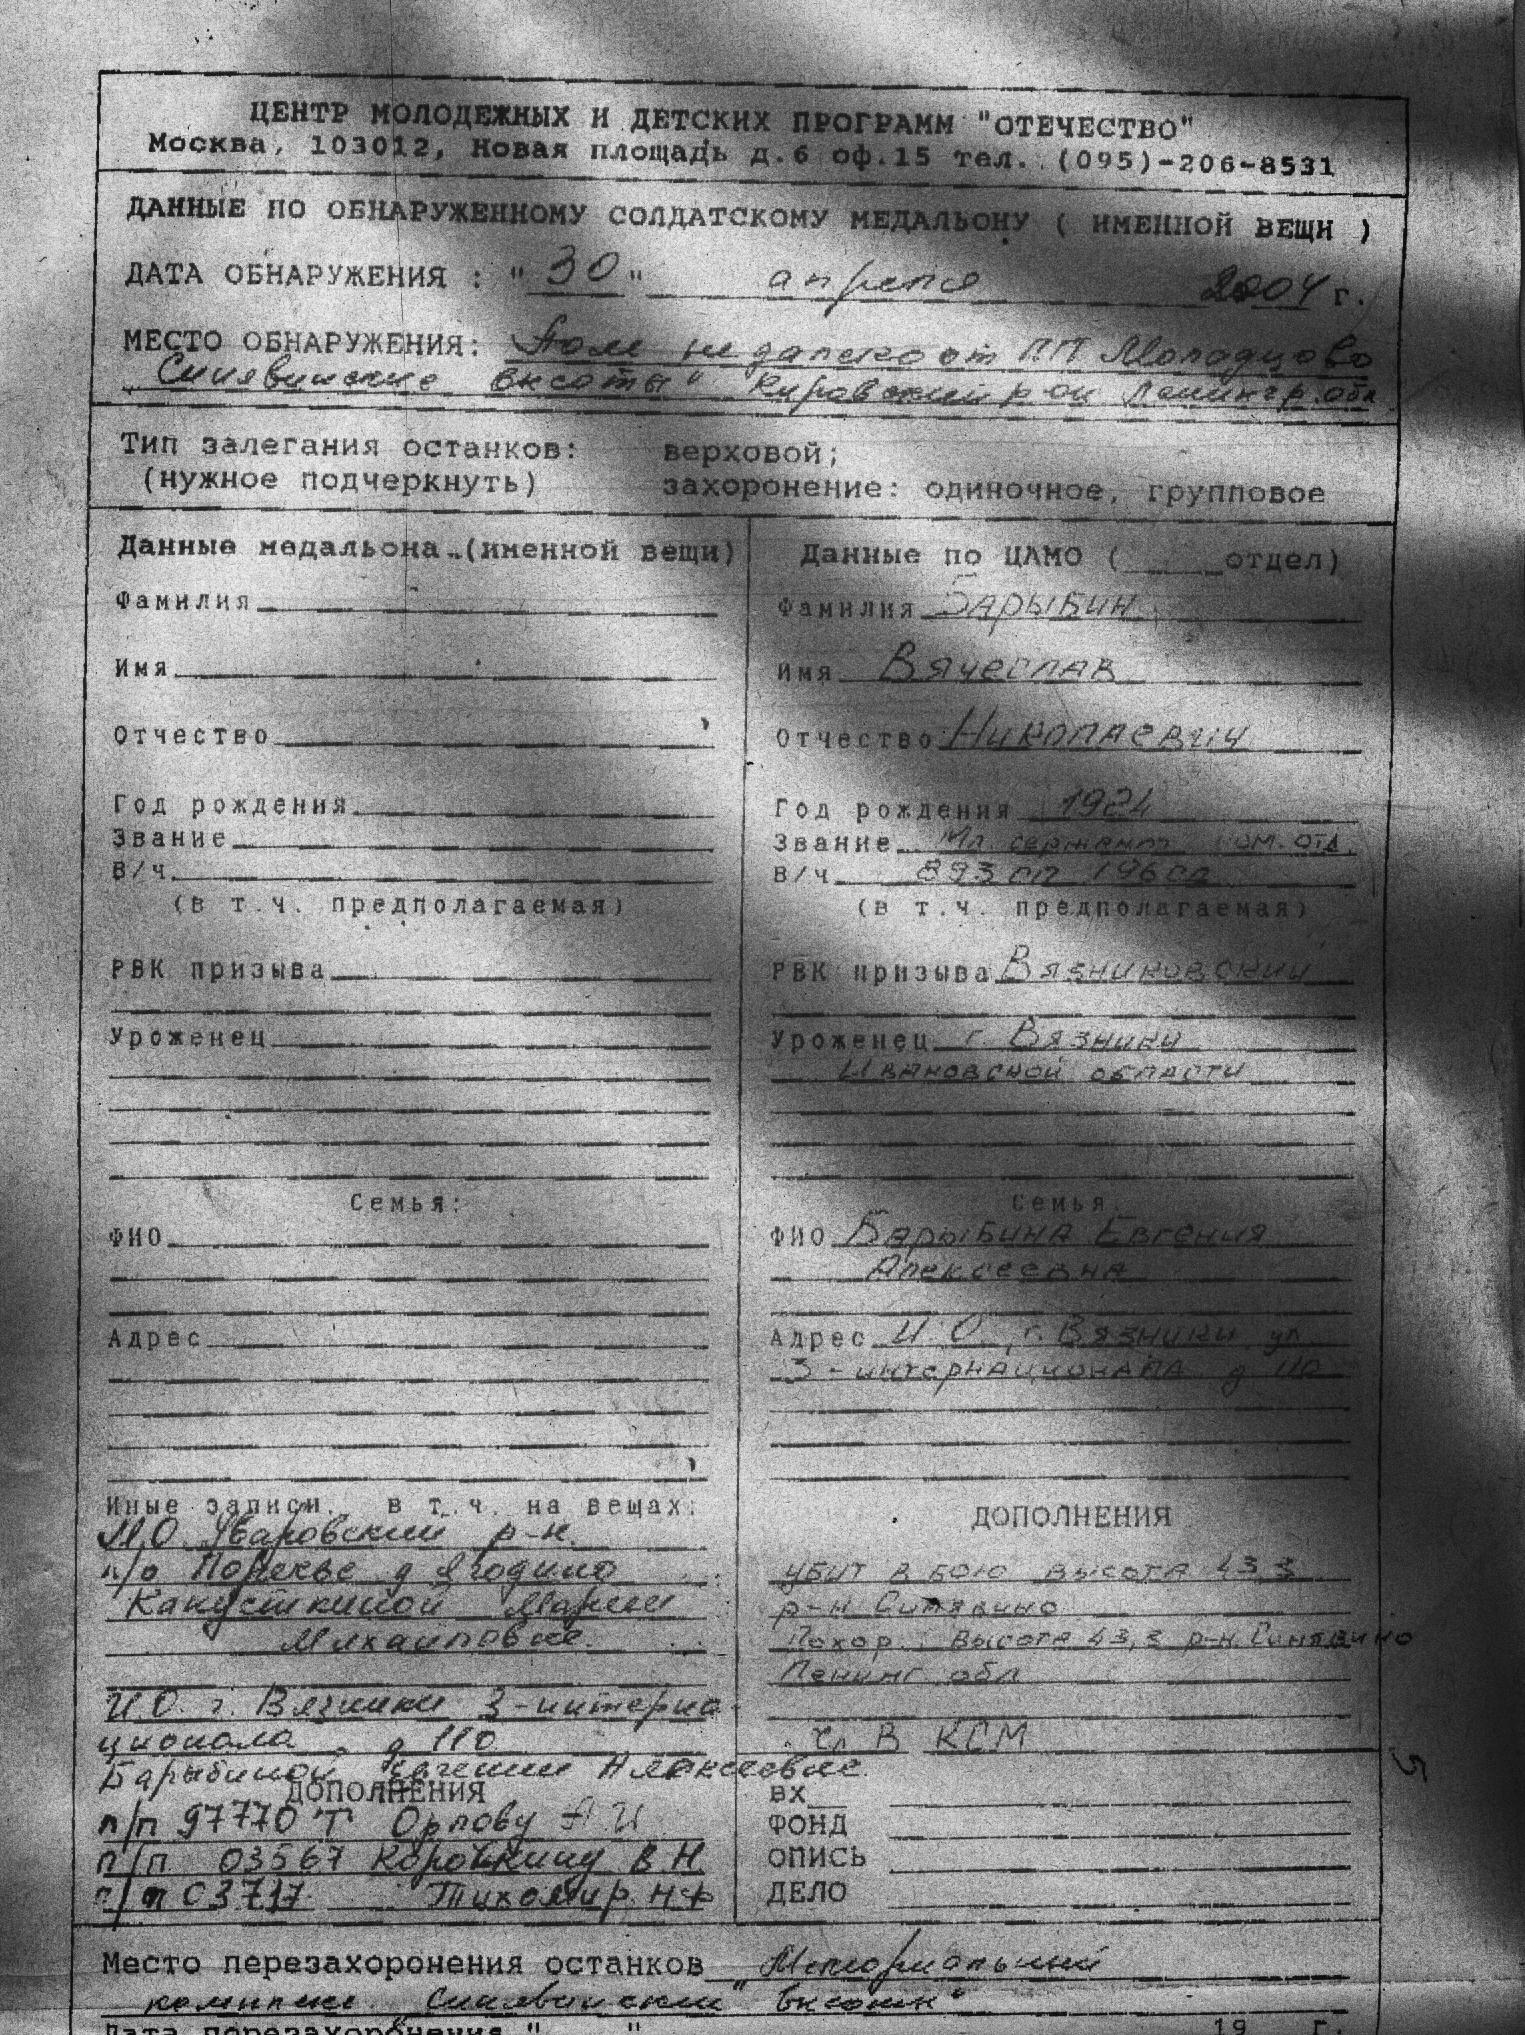 ЦЕНТР МОЛОДЕЖНЫХ И ДЕТСКИХ ПРОГРАММ "ОТЕЧЕСТВО"
Москва, 103012, Новая площадь д.6 оф.15 тел. (095)-206-8531
ДАННЫЕ ПО ОБНАРУЖЕННОМУ СОЛДАТСКОМУ МЕДАЛЬОНУ ( ИМЕННОЙ ВЕЩИ )
ДАТА ОБНАРУЖЕНИЯ : "30" апреля 2004 г.
МЕСТО ОБНАРУЖЕНИЯ: недалеко от ПП Молодцово
"Синявинские высоты" Кировский р-он Ленингр. обл.
Тип залегания останков: верховой;
(нужное подчеркнуть) захоронение: одиночное, групповое
Данные медальона (именной вещи)
Фамилия
Имя
Отчество
Год рождения
Звание
В/ч
(в т.ч. предполагаемая)
РВК призыва
Уроженец
Семья:
ФИО
Адрес
Иные записи, в т.ч. на вещах:
М.О. Уваровский р-н.
п/о Поречье д Ягодино
Капусткиной Марии
Михайловне.
И.О. г. Вязники 3-интерна-
ционала д 110
Барыбиной Евгении Алексеевне
ДОПОЛНЕНИЯ
п/п 97770 "Т" Орлову А И
п/п 03567 Коровкину В Н
п/п 03717 Тихомир. Н Ф
Данные по ЦАМО ( отдел)
Фамилия Барыбин
Имя Вячеслав
Отчество Николаевич
Год рождения 1924
Звание Мл. сержант ком. отд.
В/ч 893 сп 196 сд
(в т.ч. предполагаемая)
РВК призыва Вязниковский
Уроженец г. Вязники
Ивановской области
Семья:
ФИО Барыбина Евгения
Алексеевна
Адрес И.О., г. Вязники ул
3-интернационала д 110
ДОПОЛНЕНИЯ
убит в бою высота 43,3
р-н Синявино
Похор. высота 43,3 р-н Синявино
Ленинг. обл
Чл В КСМ
ВХ
ФОНД
ОПИСЬ
ДЕЛО
Место перезахоронения останков Мемориальный
комплекс "Синявинские высоты"
Дата перезахоронения " " 19 г.